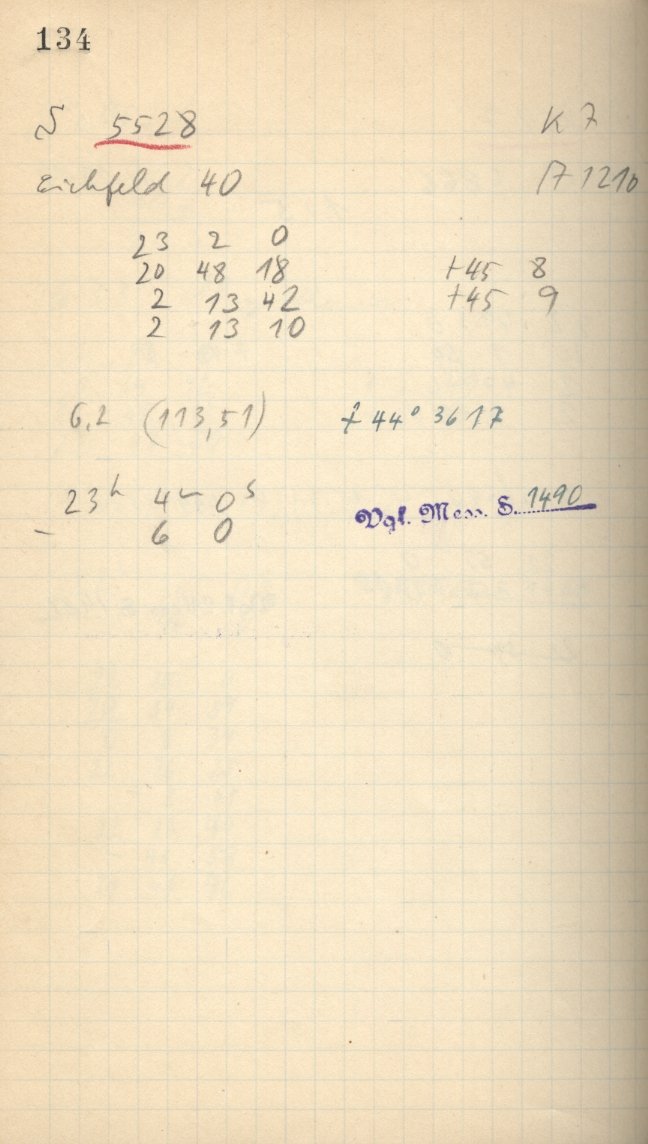 134
S 5528 K 7
Eichfeld 40 A 1210
23 2 0
20 48 18 +45 8
2 13 42 +45 9
2 13 10
6,2 (113,51) +44° 3617
23h 4m 0s
Vgl. Mess. S. 1490
- 6 0